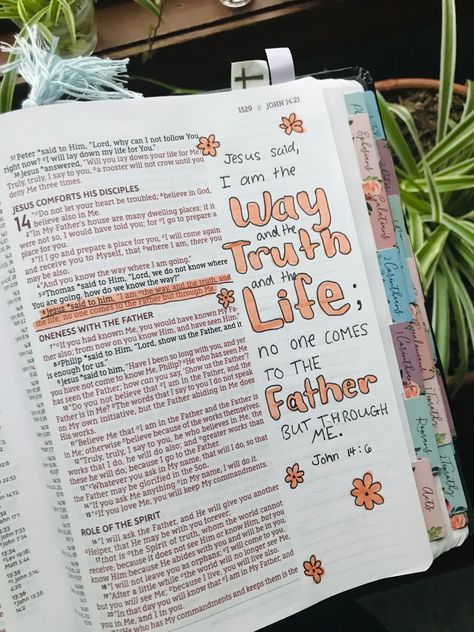 1529 JOHN 14:21
37 Peter *said to Him, "Lord, why can I not follow You
right now? I will lay down my life for You."
38 Jesus *answered, "Will you lay down your life for Me?
Truly, truly, I say to you, a rooster will not crow until you
deny Me three times.
JESUS COMFORTS HIS DISCIPLES
14 "Do not let your heart be troubled; believe in God,
believe also in Me.
2 In My Father's house are many dwelling places; if it
were not so, I would have told you; for I go to prepare a
place for you.
3 "If I go and prepare a place for you, I will come again
and receive you to Myself, that where I am, there you
may be also.
4 "And you know the way where I am going."
5 Thomas *said to Him, "Lord, we do not know where
You are going, how do we know the way?"
6 Jesus *said to him, "I am the way, and the truth, and
the life; no one comes to the Father but through Me.
ONENESS WITH THE FATHER
7 "If you had known Me, you would have known My Fa-
ther also; from now on you know Him, and have seen Him."
8 Philip *said to Him, "Lord, show us the Father, and it
is enough for us."
9 Jesus *said to him, "Have I been so long with you, and yet
you have not come to know Me, Philip? He who has seen Me
has seen the Father; how can you say, 'Show us the Father'?
10 "Do you not believe that I am in the Father, and the
Father is in Me? The words that I say to you I do not speak
on My own initiative, but the Father abiding in Me does
His works.
11 "Believe Me that I am in the Father and the Father is
in Me; otherwise believe because of the works themselves.
12 "Truly, truly, I say to you, he who believes in Me, the
works that I do, he will do also; and greater works than
these he will do; because I go to the Father.
13 "Whatever you ask in My name, that will I do, so that
the Father may be glorified in the Son.
14 "If you ask Me anything in My name, I will do it.
15 "If you love Me, you will keep My commandments.
ROLE OF THE SPIRIT
16 "I will ask the Father, and He will give you another
Helper, that He may be with you forever;
17 that is the Spirit of truth, whom the world cannot
receive, because it does not see Him or know Him, but you
know Him because He abides with you and will be in you.
18 "I will not leave you as orphans; I will come to you.
19 "After a little while the world will no longer see Me,
but you will see Me; because I live, you will live also.
20 "In that day you will know that I am in My Father,
and you in Me, and I in you.
21 "He who has My commandments and keeps them is the
Jesus said,
I am the
Way
and the
Truth
and the
Life;
no one comes
TO THE
Father
BUT THROUGH
ME.
John 14:6
Ephesians
2 Corinthians
1 Corinthians
Romans
Acts